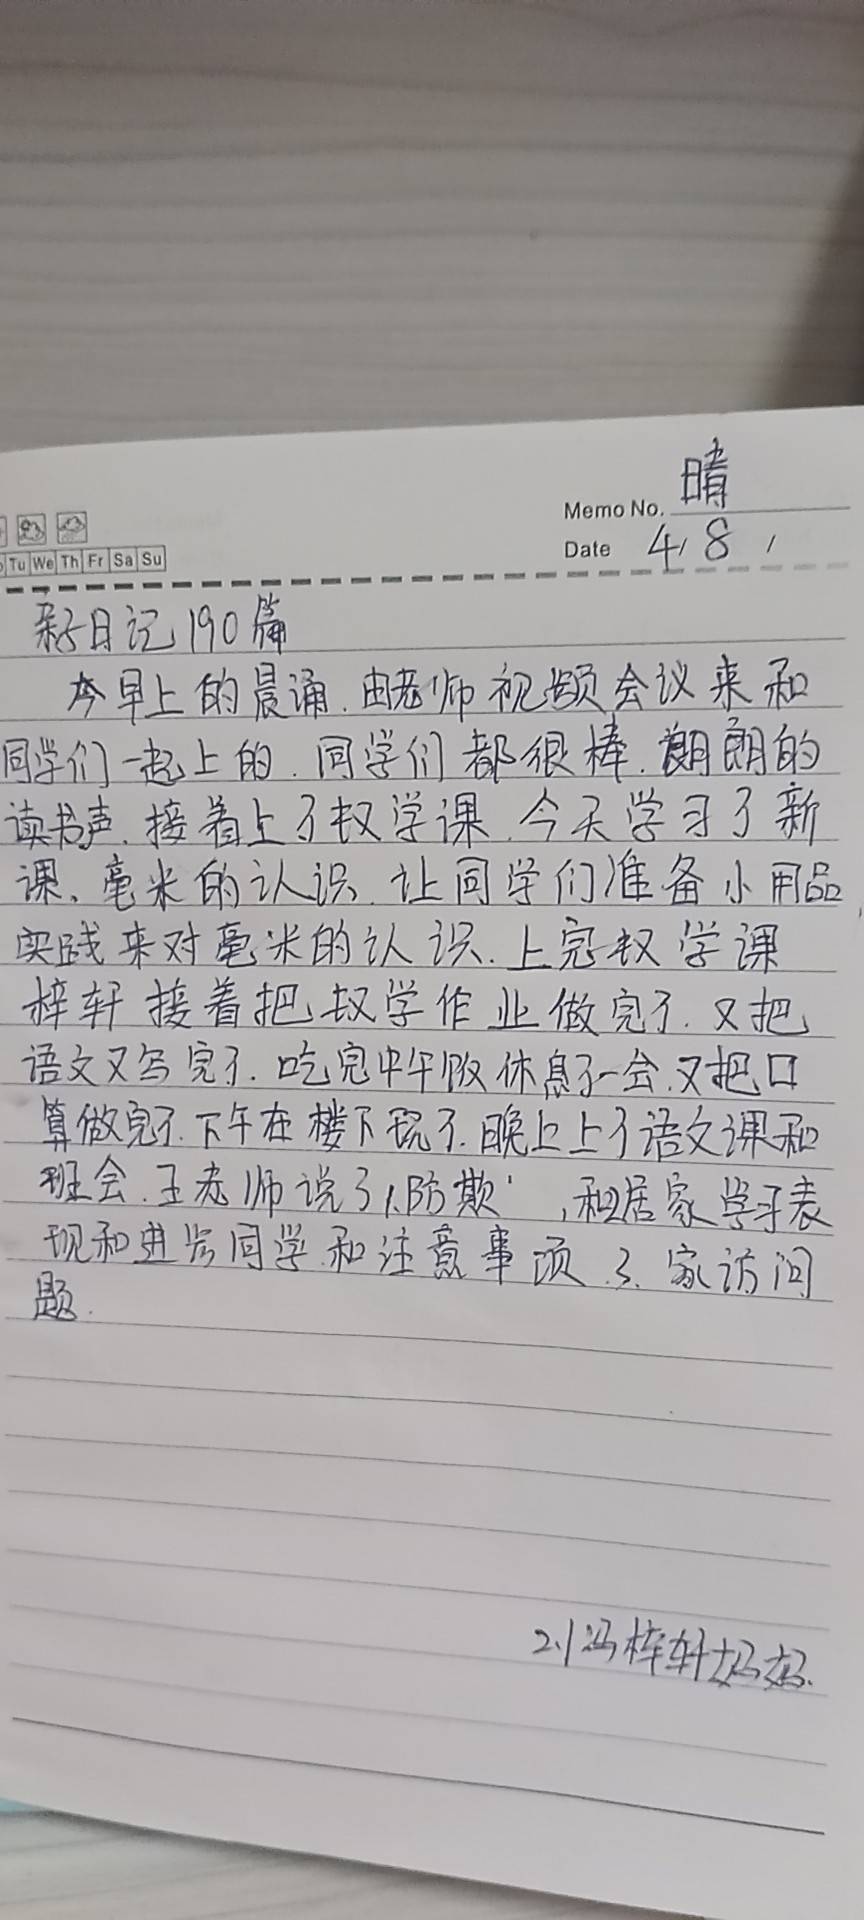 晴
Memo No.
Date 4/8/
Tu We Th Fr Sa Su
亲子日记190篇
今早上的晨诵.由老师视频会议来和
同学们一起上的.同学们都很棒.朗朗的
读书声.接着上了数学课.今天学习了新
课、毫米的认识.让同学们准备小用品
实践来对毫米的认识.上完数学课
梓轩接着把数学作业做完了.又把
语文又写完了.吃完中午饭休息了一会.又把口
算做完了.下午在楼下玩了.晚上上了语文课和
班会.王老师说了1.防欺',和居家学习表
现和进步同学和注意事项.3.家访问
题.
2.1冯梓轩妈妈.